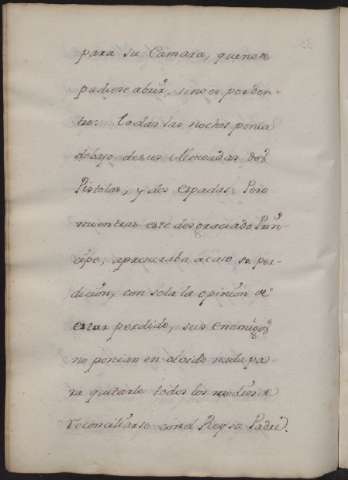 para su Camara, que no se
pudiese abrir, sino es por den-
tro. Todas las noches ponia
debajo de sus Almoadas dos
Pistolas, y dos espadas. Pero
mientras este desgraciado Prin
cipe, apresuraba acaso su per-
dicion, con sola la opinion de
estar perdido, sus enemigos
no ponian en olvido nada pa-
ra quitarle todos los medios de
reconciliarse con el Rey su Padre.